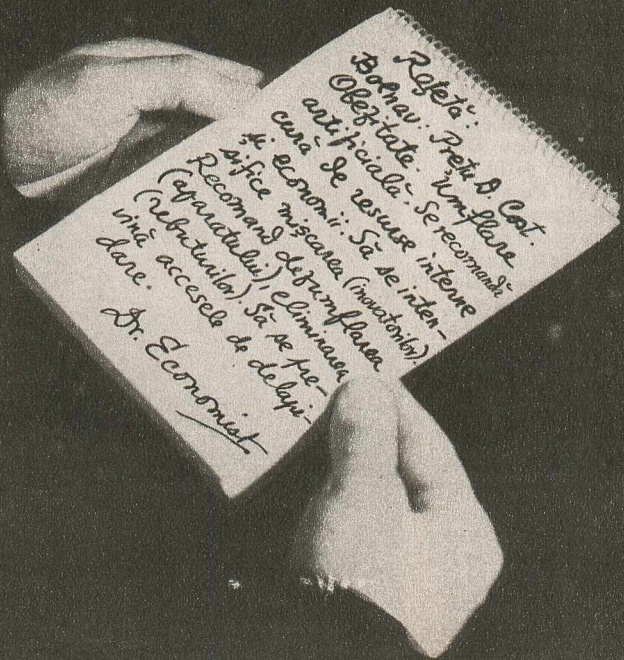 Rețetă:
Bolnav. Prețu D. Cost.
Obezitate. Umflare
artificială. Se recomandă
cură de resurse interne
și economii. Să se inten-
sifice mișcarea (inovatorilor).
Recomand dezumflarea
(aparatului), eliminarea
(rebuturilor). Să se pre-
vină accesele de delapi-
dare.
Dr. Economist